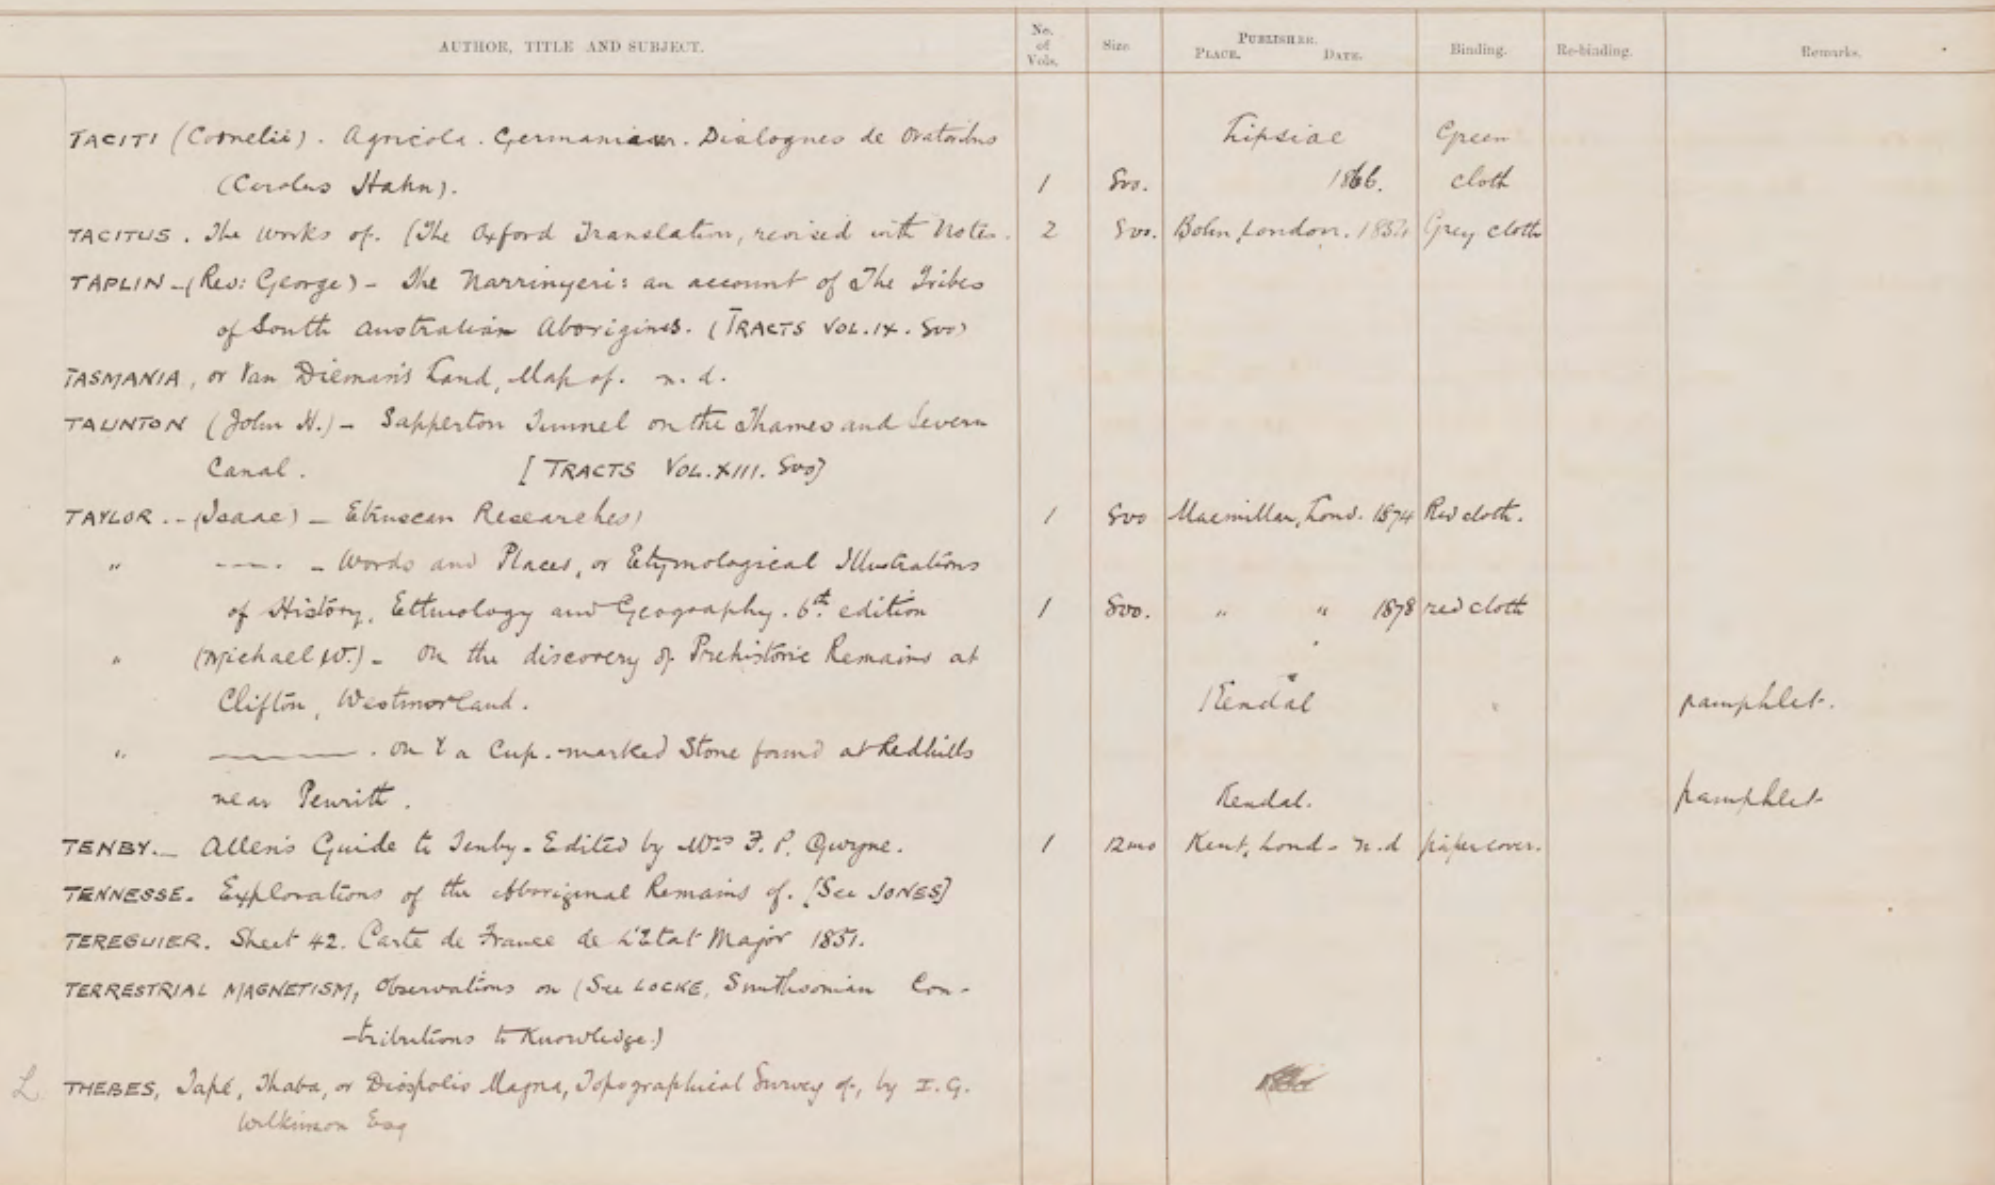 AUTHOR, TITLE AND SUBJECT. No. of Vols. Size PUBLISHER. PLACE. DATE. Binding. Re-binding. Remarks.
TACITI (Cornelii). Agricola. Dialogues de Oratoribus Lipsiae Green
(Carolus Hahn). 1 8vo. 1866. cloth
TACITUS. The works of. (The Oxford Translation, revised with Notes. 2 8vo. Bohn, London. Grey cloth
TAPLIN - (Rev: George) - The Narrinyeri: an account of The Tribes
of South Australian Aborigines. (TRACTS VOL. IX. 8vo)
TASMANIA, or Van Dieman's Land, Map of. n.d.
TAUNTON (John H.) - Sapperton Tunnel on the Thames and Severn
Canal. [TRACTS VOL. XIII. 8vo]
TAYLOR. - (Isaac) - Etruscan Researches 1 8vo Macmillan, Lond. 1874 Red cloth.
" ---. - Words and Places, or Etymological Illustrations
of History, Ethnology and Geography. 6th. edition 1 8vo. " " 1878 red cloth
" (Michael W.) - On the discovery of Prehistoric Remains at
Clifton, Westmorland. Kendal pamphlet.
" ——. On a Cup-marked Stone found at Redhills
near Penrith. Kendal. pamphlet
TENBY. - Allen's Guide to Tenby - Edited by Mrs F. P. Gwynne. 1 12mo Kent, Lond - n.d paper cover.
TENNESSE. Explorations of the Aboriginal Remains of. [See JONES]
TEREGUIER. Sheet 42. Carte de France de L'Etat Major 1851.
TERRESTRIAL MAGNETISM, Observations on (See LOCKE, Smithsonian Con-
-tributions to Knowledge.)
L THEBES, Tapé, Thaba, or Diospolis Magna, Topographical Survey of, by I. G.
Wilkinson Esq